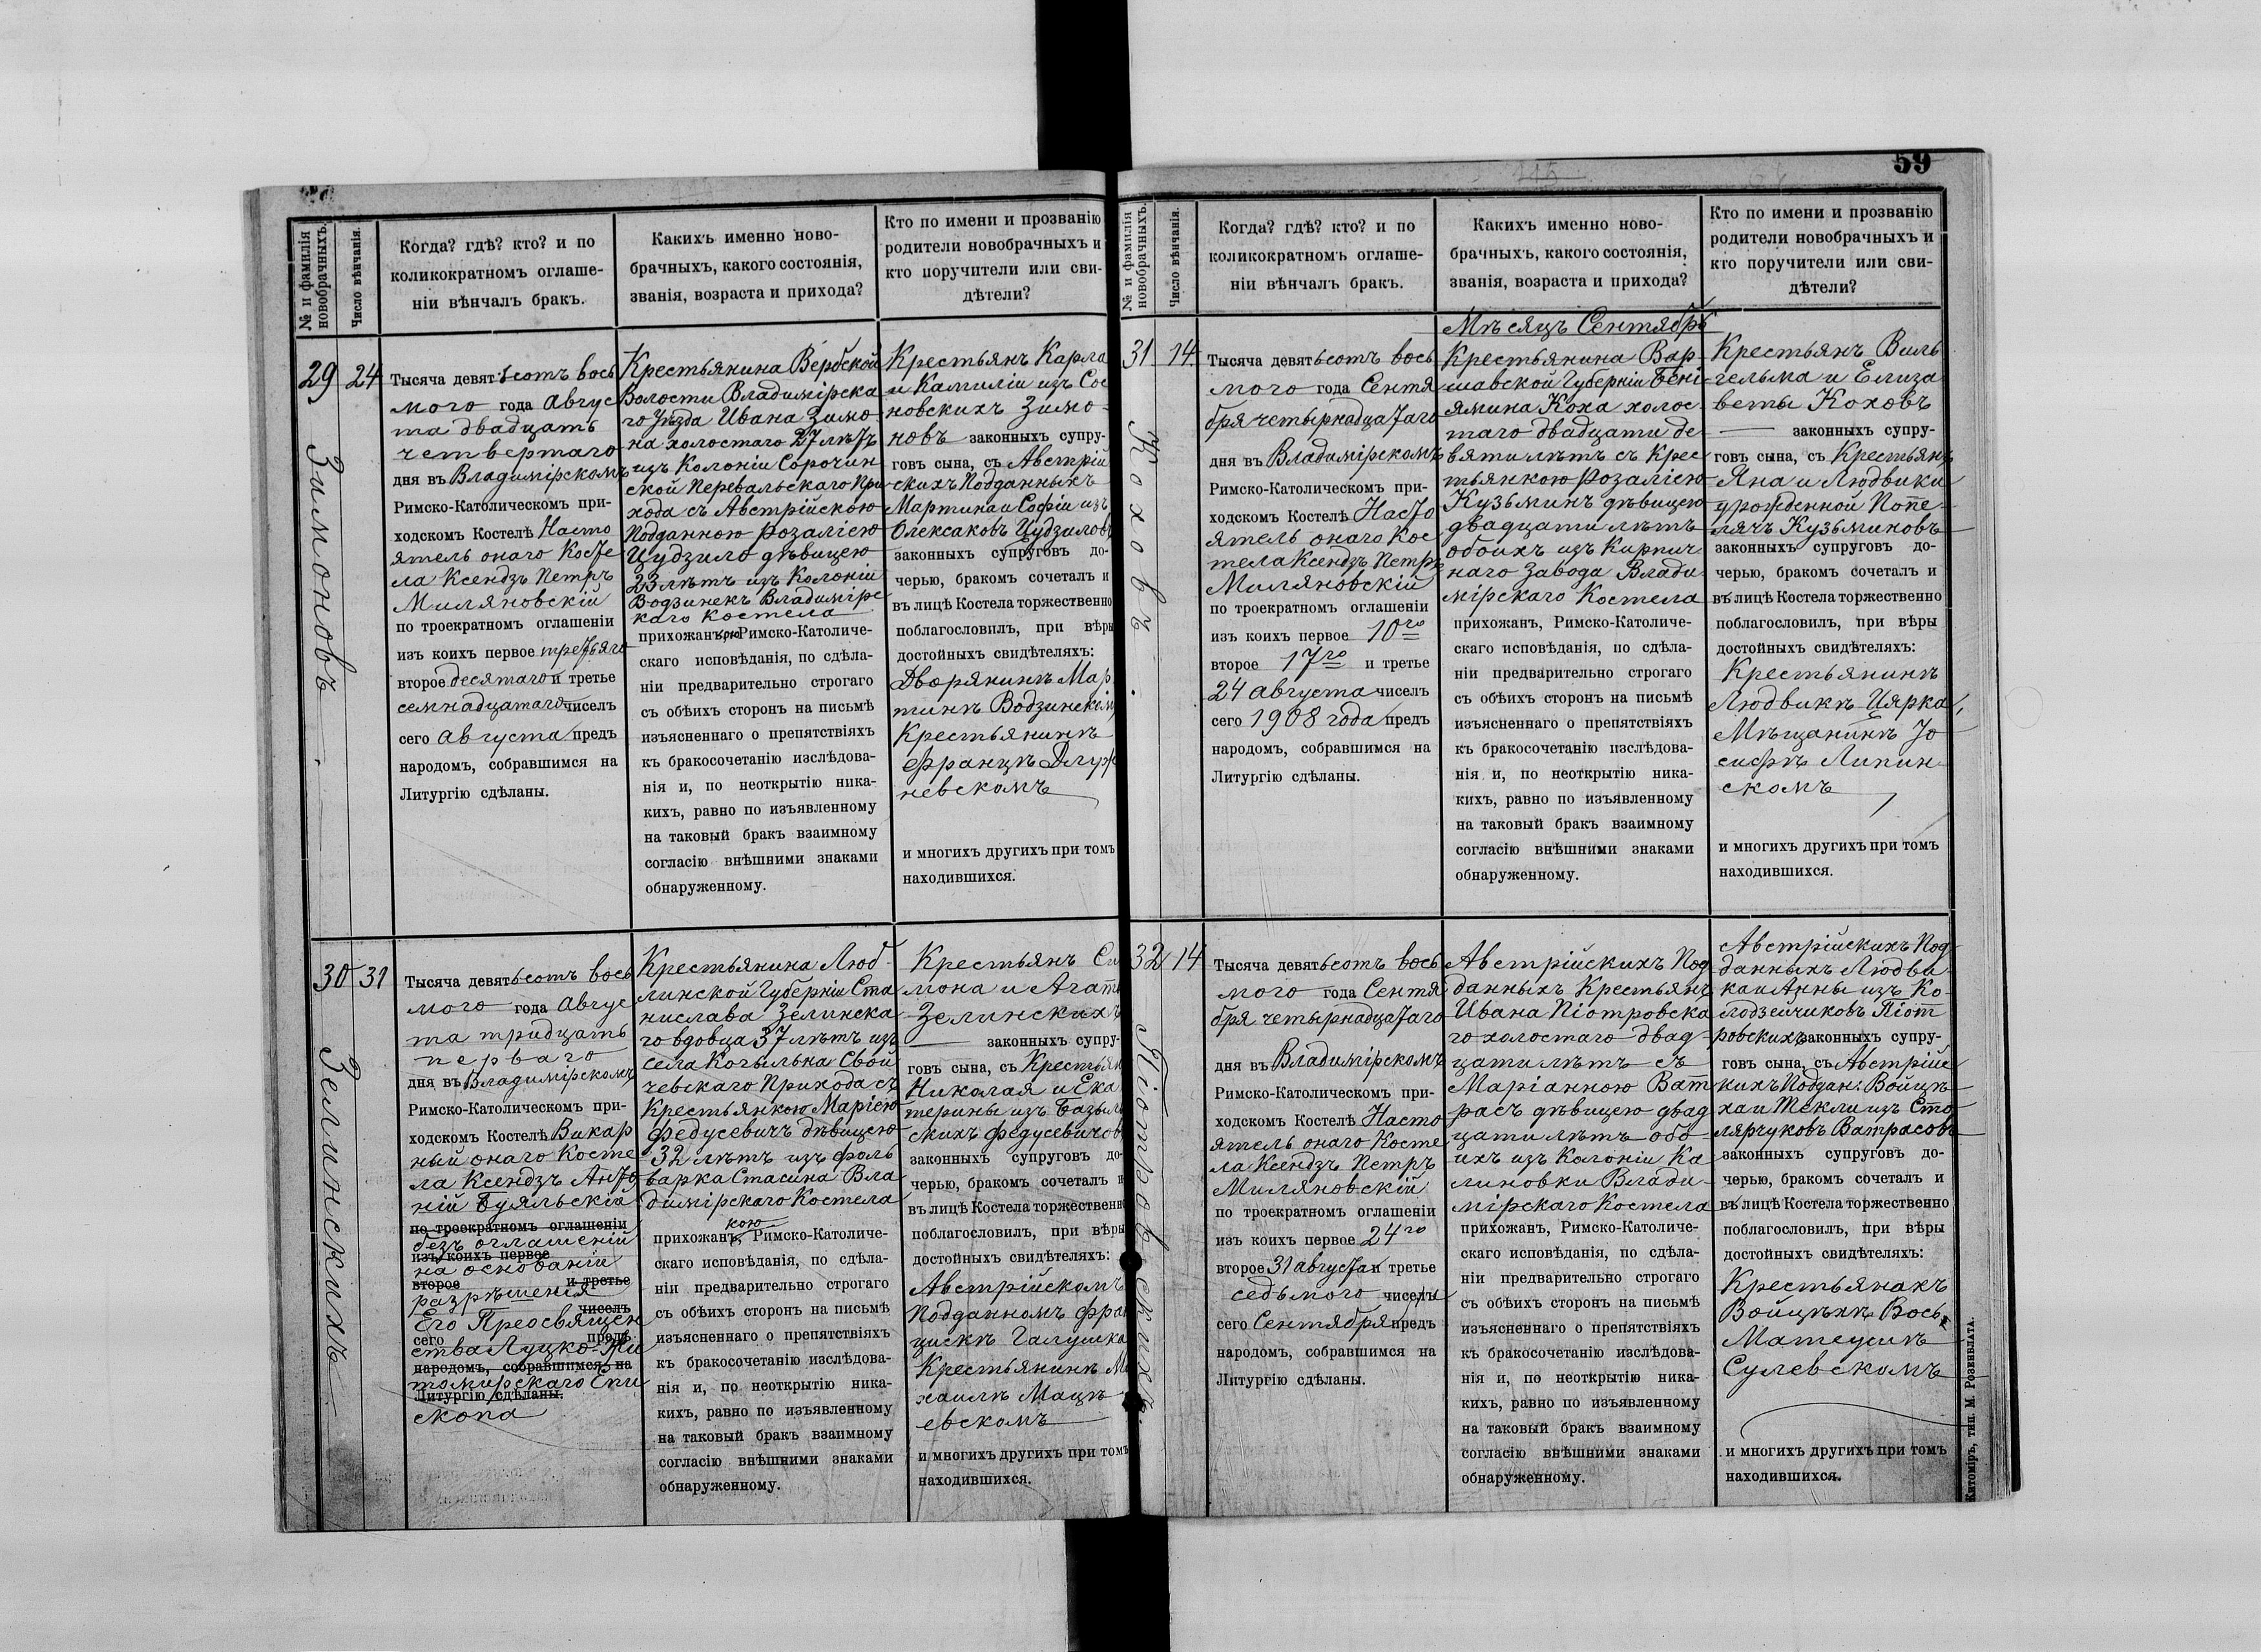 59
№ и фамилія новобрачныхъ.
Число вѣнчанія.
Когда? гдѣ? кто? и по
коликократномъ оглаше-
ніи вѣнчалъ бракъ.
Какихъ именно ново-
брачныхъ, какого состоянія,
званія, возраста и прихода?
Кто по имени и прозванію
родители новобрачныхъ и
кто поручители или сви-
дѣтели?
29
24
Зимоновъ
Тысяча девятьсотъ вось
мого года Авгус
та двадцать
четвертаго
дня въ Владимірскомъ
Римско-Католическомъ при-
ходскомъ Костелѣ Насто
ятель онаго Косте
ла Ксендзъ Петръ
Миляновскій
по троекратномъ оглашеніи
изъ коихъ первое третьяго
второе десятаго и третье
семнадцатаго чиселъ
сего августа предъ
народомъ, собравшимся на
Литургію сдѣланы.
Крестьянина Вербской
Волости Владимірска
го Уѣзда Ивана Зимо-
на холостаго 27 лѣтъ
изъ Колоніи Сорочин
ской Перевальскаго При
хода съ Австрійскою
Подданною Розаліею
Цудзило дѣвицею
23 лѣтъ изъ Колоніи
Водзинекъ Владимірс
каго Костела
прихожанкою Римско-Католиче-
скаго исповѣданія, по сдѣла-
ніи предварительно строгаго
съ обѣихъ сторонъ на письмѣ
изъясненнаго о препятствіяхъ
къ бракосочетанію изслѣдова-
нія и, по неоткрытію ника-
кихъ, равно по изъявленному
на таковый бракъ взаимному
согласію внѣшними знаками
обнаруженному.
Крестьянъ Карла
и Камиліи изъ Сос
новскихъ Зимо-
новъ законныхъ супру-
говъ сына, съ Австрій
скихъ Подданныхъ
Мартина и Софіи изъ
Олексаковъ Цудзиловъ
законныхъ супруговъ до-
черью, бракомъ сочеталъ и
въ лицѣ Костела торжественно
поблагословилъ, при вѣры
достойныхъ свидѣтеляхъ:
Дворянинѣ Мар
тинѣ Водзинскомъ
Крестьянинѣ
Францѣ
невскомъ
и многихъ другихъ при томъ
находившихся.
30
31
Зелинскихъ
Тысяча девятьсотъ вось
мого года Авгус
та тридцать
перваго
дня въ Владимірскомъ
Римско-Католическомъ при-
ходскомъ Костелѣ Викар
ный онаго Косте
ла Ксендзъ Анто
ній Буяльскій
по троекратномъ оглашеніи
безъ оглашеній
изъ коихъ первое
на основаніи
второе и третье
разрѣшенія
чиселъ
Его Преосвящен
сего предъ
ства Луцко-Жи
народомъ, собравшимся на
томирскаго Епи
Литургію сдѣланы.
скопа
Крестьянина Люб-
линской Губерніи Ста
нислава Зелинска
го вдовца 37 лѣтъ изъ
села Когыльна Свой
чевскаго Прихода съ
Крестьянкою Маріею
Федусевичъ дѣвицею
32 лѣтъ изъ фоль
варка Стасина Вла
димірскаго Костела
кою
прихожанъ, Римско-Католиче-
скаго исповѣданія, по сдѣла-
ніи предварительно строгаго
съ обѣихъ сторонъ на письмѣ
изъясненнаго о препятствіяхъ
къ бракосочетанію изслѣдова-
нія и, по неоткрытію ника-
кихъ, равно по изъявленному
на таковый бракъ взаимному
согласію внѣшними знаками
обнаруженному.
Крестьянъ Си
мона и Агаты
Зелинскихъ
законныхъ супру-
говъ сына, съ Крестьян
Николая и Ека
терины изъ Базыль
скихъ Федусевичовъ
законныхъ супруговъ до-
черью, бракомъ сочеталъ и
въ лицѣ Костела торжественно
поблагословилъ, при вѣры
достойныхъ свидѣтеляхъ:
Австрійскомъ
Подданномъ Фран
цискѣ Галушка
Крестьянинѣ Ми
хаилѣ Мацѣ
евскомъ
и многихъ другихъ при томъ
находившихся.
№ и фамилія новобрачныхъ.
Число вѣнчанія.
Когда? гдѣ? кто? и по
коликократномъ оглаше-
ніи вѣнчалъ бракъ.
Какихъ именно ново-
брачныхъ, какого состоянія,
званія, возраста и прихода?
Кто по имени и прозванію
родители новобрачныхъ и
кто поручители или сви-
дѣтели?
Мѣсяцъ Сентябрь
31
14
Коховъ.
Тысяча девятьсотъ вось
мого года Сентя
бря четырнадцатаго
дня въ Владимірскомъ
Римско-Католическомъ при-
ходскомъ Костелѣ Насто
ятель онаго Кос
тела Ксендзъ Петръ
Миляновскій
по троекратномъ оглашеніи
изъ коихъ первое 10го
второе 17го и третье
24 августа чиселъ
сего 1908 года предъ
народомъ, собравшимся на
Литургію сдѣланы.
Крестьянина Вар-
шавской Губерніи Бені-
ямина Коха холос-
таго двадцати де
вяти лѣтъ съ Крес
тьянкою Розаліею
Кузьминъ дѣвицею
двадцати лѣтъ
обоихъ изъ Кирпич
наго Завода Влади
мірскаго Костела
прихожанъ, Римско-Католиче-
скаго исповѣданія, по сдѣла-
ніи предварительно строгаго
съ обѣихъ сторонъ на письмѣ
изъясненнаго о препятствіяхъ
къ бракосочетанію изслѣдова-
нія и, по неоткрытію ника-
кихъ, равно по изъявленному
на таковый бракъ взаимному
согласію внѣшними знаками
обнаруженному.
Крестьянъ Виль
гельма и Елиза
веты Коховъ
законныхъ супру-
говъ сына, съ Крестьянъ
Яна и Людвики
урожденной Попе-
лячъ Кузьминовъ
законныхъ супруговъ до-
черью, бракомъ сочеталъ и
въ лицѣ Костела торжественно
поблагословилъ, при вѣры
достойныхъ свидѣтеляхъ:
Крестьянинѣ
Людвикѣ Цярка,
Мѣщанинѣ Іо
сифѣ Липин-
скомъ
и многихъ другихъ при томъ
находившихся.
32
14
Піотровскихъ
Тысяча девятьсотъ вось
мого года Сентя
бря четырнадцатаго
дня въ Владимірскомъ
Римско-Католическомъ при-
ходскомъ Костелѣ Насто
ятель онаго Косте
ла Ксендзъ Петръ
Миляновскій
по троекратномъ оглашеніи
изъ коихъ первое 24го
второе 31 августа и третье
седьмого чиселъ
сего Сентября предъ
народомъ, собравшимся на
Литургію сдѣланы.
Австрійскихъ Под
данныхъ Крестьянъ
Ивана Піотровска
го холостаго двад-
цати лѣтъ съ
Маріанною Ват
расъ дѣвицею двад
цати лѣтъ обо-
ихъ изъ Колоніи Ка
линовки Влади-
мірскаго Костела
прихожанъ, Римско-Католиче-
скаго исповѣданія, по сдѣла-
ніи предварительно строгаго
съ обѣихъ сторонъ на письмѣ
изъясненнаго о препятствіяхъ
къ бракосочетанію изслѣдова-
нія и, по неоткрытію ника-
кихъ, равно по изъявленному
на таковый бракъ взаимному
согласію внѣшними знаками
обнаруженному.
Австрійскихъ Под
данныхъ Людви
ка и Анны изъ Ко-
лодзейчиковъ Піот
ровскихъ законныхъ супру-
говъ сына, съ Австрійс
кихъ Поддан: Войцѣ
ха и Текли изъ Сто
лярчуковъ Ватрасовъ
законныхъ супруговъ до-
черью, бракомъ сочеталъ и
въ лицѣ Костела торжественно
поблагословилъ, при вѣры
достойныхъ свидѣтеляхъ:
Крестьянахъ
Войцѣхѣ Вось,
Матеушѣ
Сулевскомъ
и многихъ другихъ при томъ
находившихся.
Житоміръ, тип. М. Розенблата.